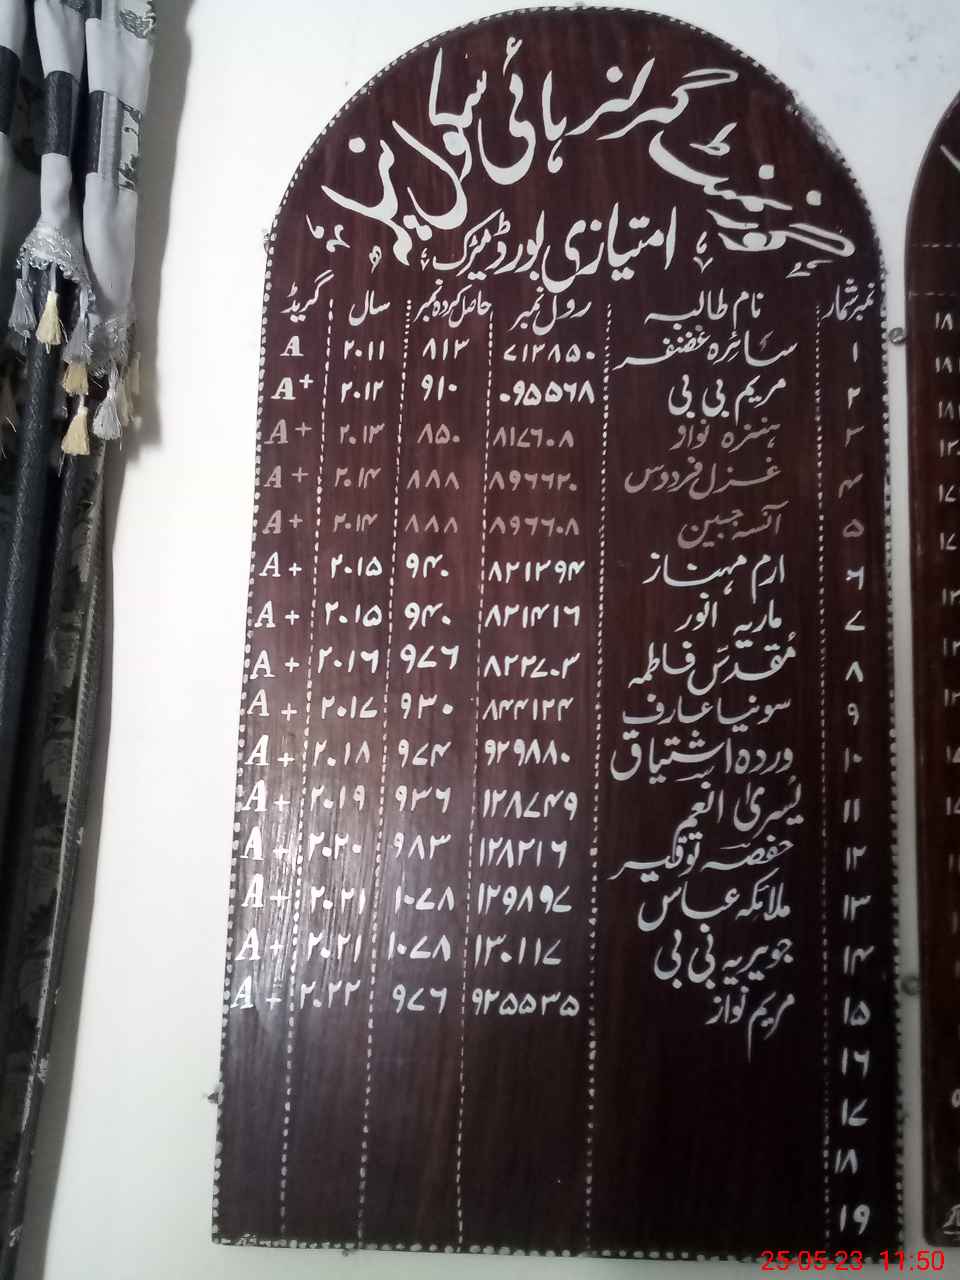 گورنمنٹ گرلز ہائی سکول
امتیازی بورڈ میٹرک
نمبر شمار نام طالبہ رول نمبر حاصل کردہ نمبر سال گریڈ
۱ سائرہ غضنفر ۷۱۲۸۵۰ ۸۱۳ ۲۰۱۱ A
۲ مریم بی بی ۰۹۵۵۶۸ ۹۱۰ ۲۰۱۲ A+
۳ ہنزہ نواز ۸۱۷۶۰۸ ۸۵۰ ۲۰۱۳ A+
۴ غزل فردوس ۸۹۶۶۲۰ ۸۸۸ ۲۰۱۴ A+
۵ آنسہ جبین ۸۹۶۶۰۸ ۸۸۸ ۲۰۱۴ A+
۶ ارم مہناز ۸۲۱۲۹۴ ۹۴۰ ۲۰۱۵ A+
۷ ماریہ انور ۸۲۱۴۱۶ ۹۴۰ ۲۰۱۵ A+
۸ مُقدّس فاطمہ ۸۲۲۷۰۳ ۹۷۶ ۲۰۱۶ A+
۹ سونیا عارف ۸۴۴۱۲۴ ۹۳۰ ۲۰۱۷ A+
۱۰ وردہ اشتیاق ۹۲۹۸۸۰ ۹۷۴ ۲۰۱۸ A+
۱۱ یُسریٰ انعم ۱۲۸۷۴۹ ۹۳۶ ۲۰۱۹ A+
۱۲ حفصہ توقیر ۱۲۸۲۱۶ ۹۸۳ ۲۰۲۰ A+
۱۳ ملائکہ عباس ۱۲۹۸۹۷ ۱۰۷۸ ۲۰۲۱ A+
۱۴ جویریہ بی بی ۱۳۰۱۱۷ ۱۰۷۸ ۲۰۲۱ A+
۱۵ مریم نواز ۹۲۵۵۳۵ ۹۷۶ ۲۰۲۲ A+
۱۶
۱۷
۱۸
۱۹
25-05-23 11:50